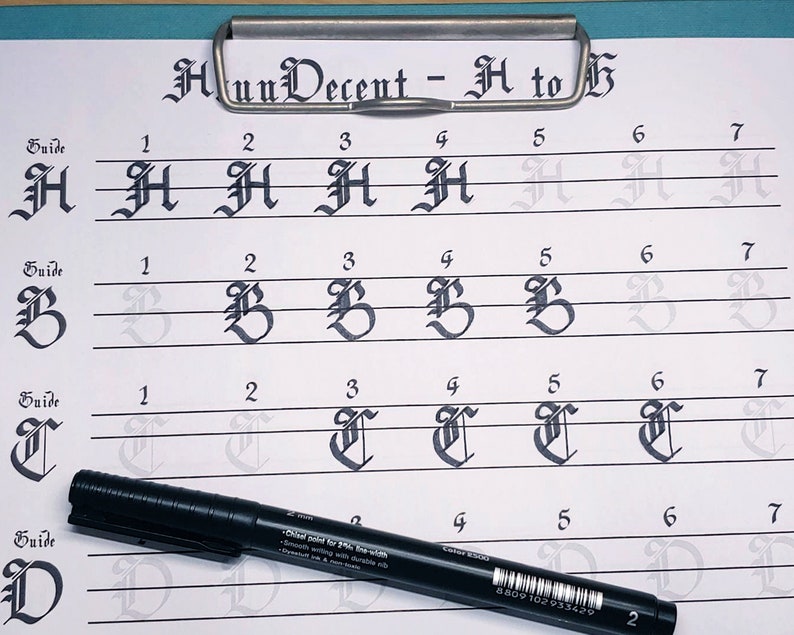 Decent - A to
Guide 1 2 3 4 5 6 7
A A A A A A A A
Guide 1 2 3 4 5 6 7
B B B B B B B B
Guide 1 2 3 4 5 6 7
C C C C C C C C
Guide 4 5 6 7
D D D D D
2 mm
•Chisel point for 2m/m line-width
•Smooth writing with durable nib
•Dyestuff ink & non-toxic
Color 2500
8809102933429
2